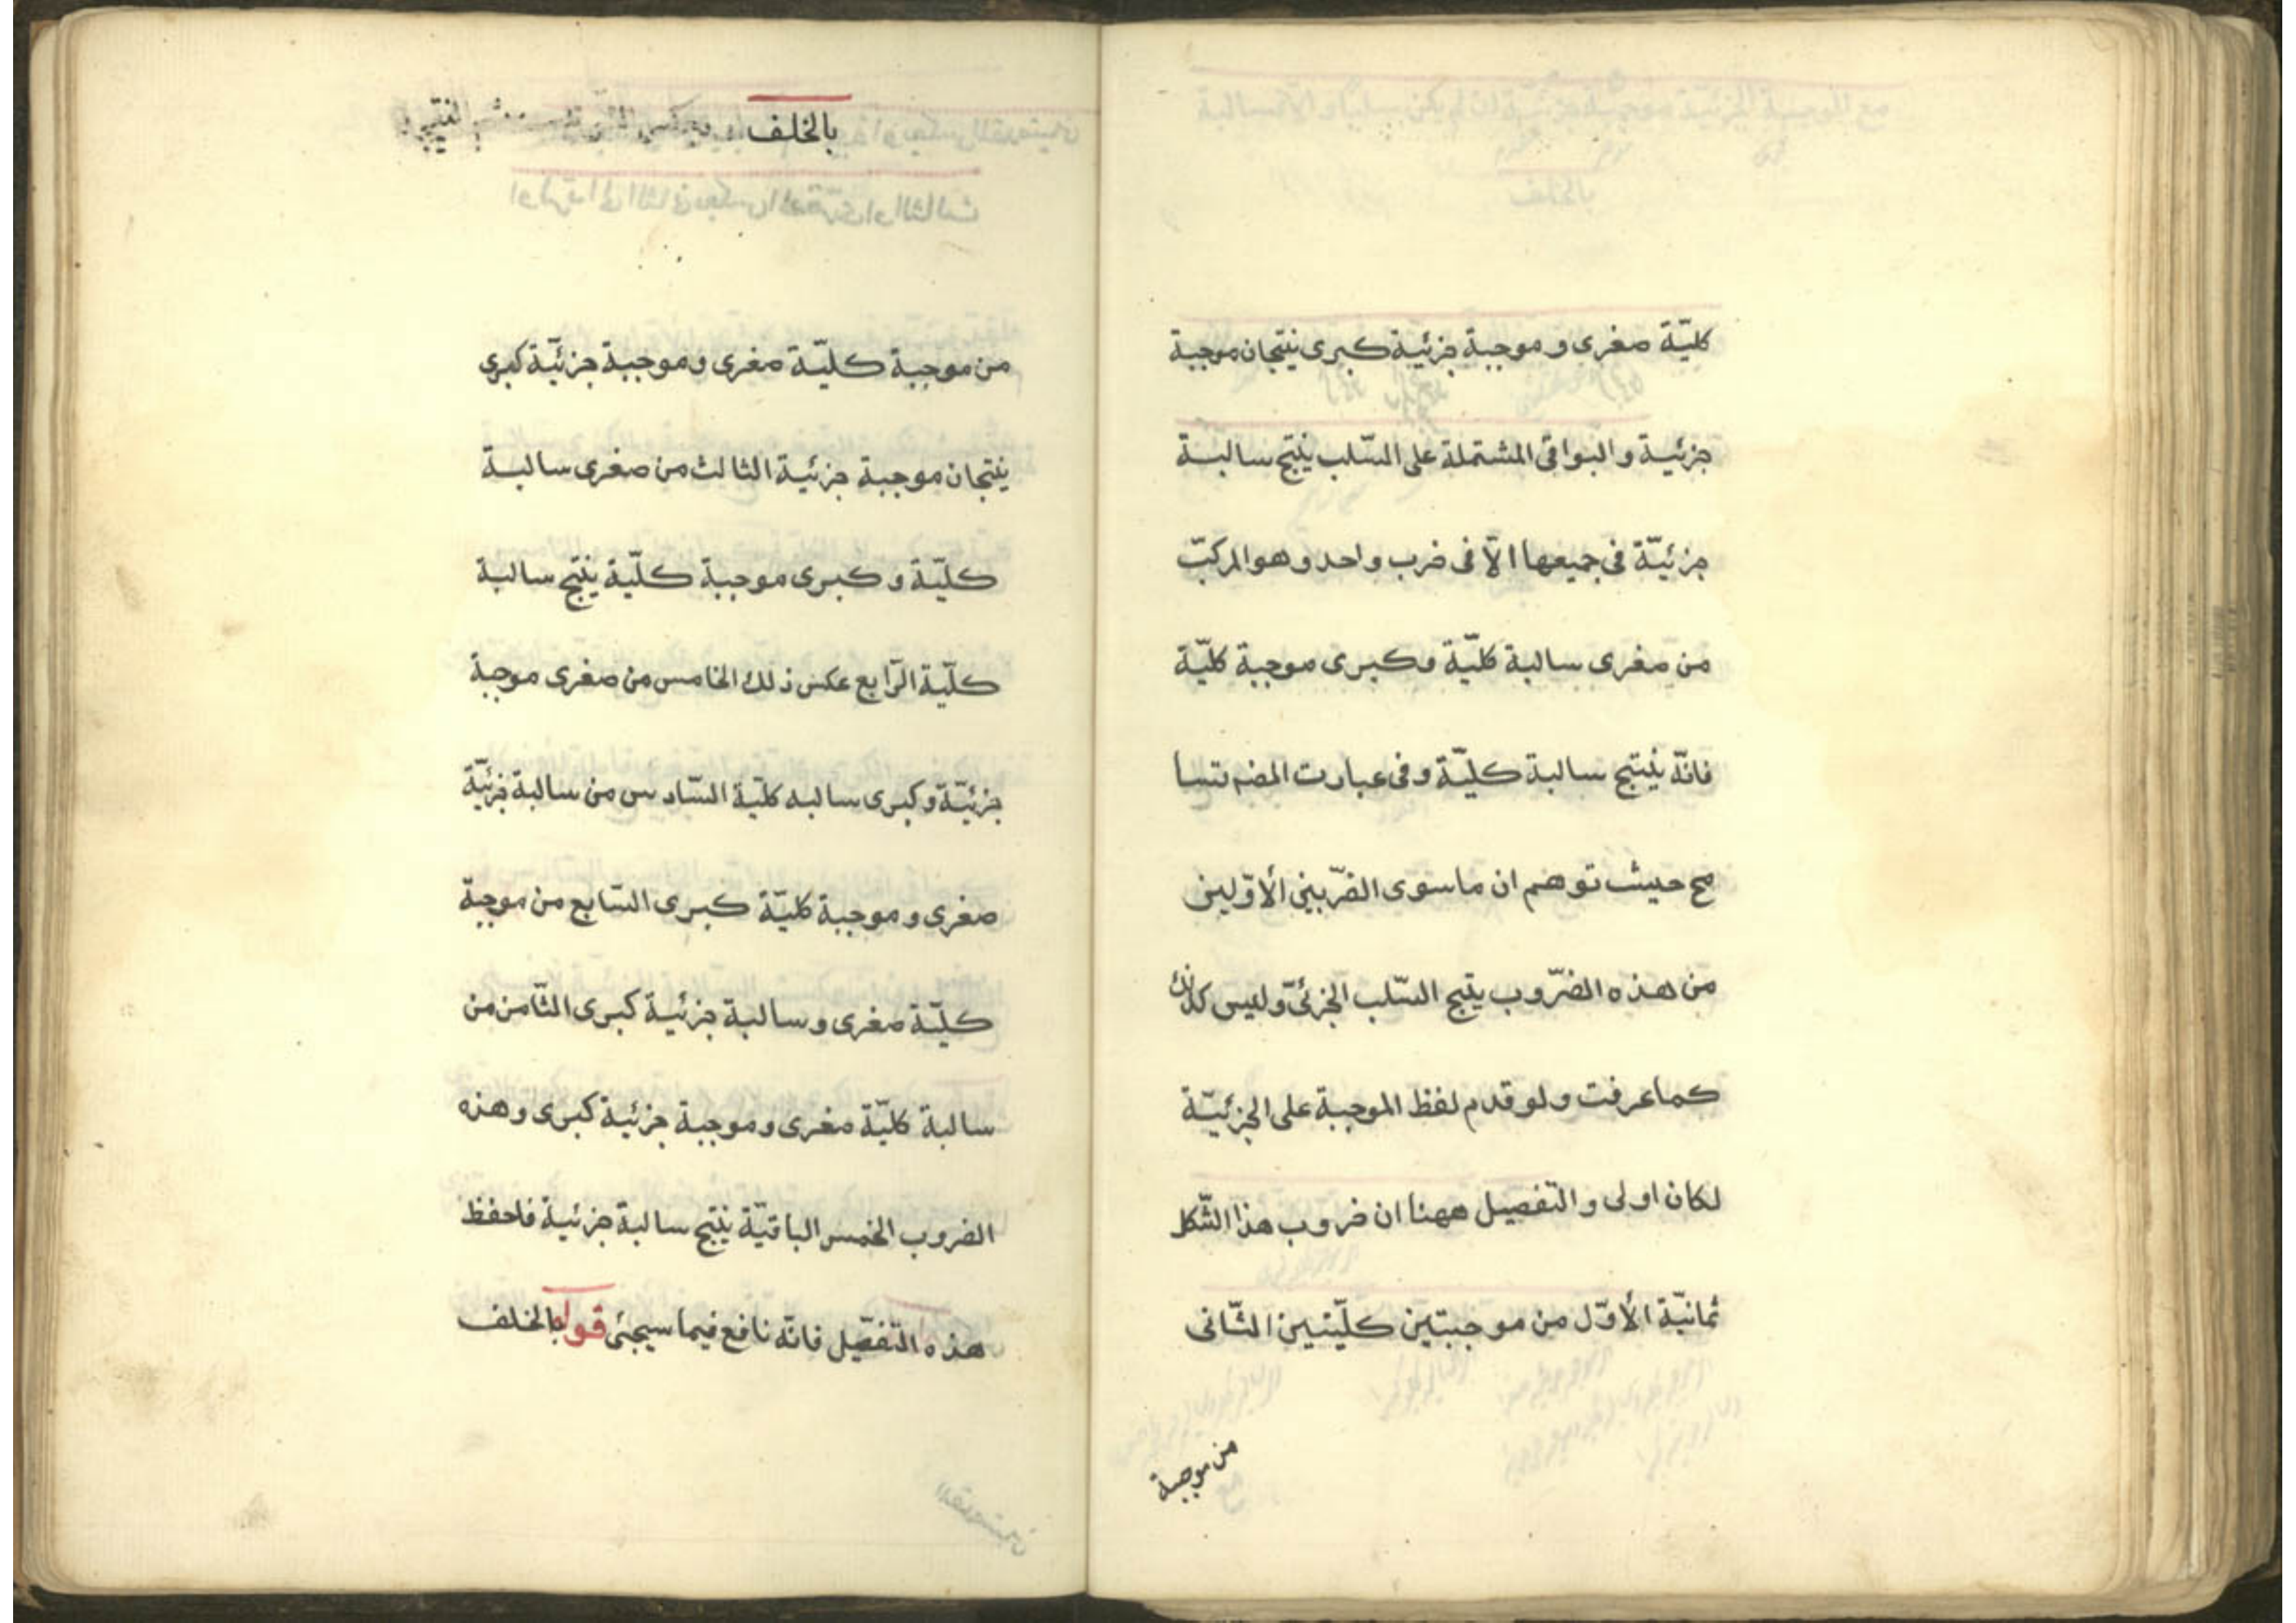 كليّة صغرى و موجبة جزئية كبرى ينتجان موجبة
جزئية و البواقى المشتملة على السّلب ينتج سالبة
جزئيّة فى جميعها الاّ فى ضرب واحد و هو المركبّ
من صغرى سالبة كليّة وكبرى موجبة كليّة
فانّه ينتج سالبة كليّة و فى عبارت المضـ تسا
مح حيث توهم ان ما سوى الضّربين الأوّلين
من هذه الضّروب ينتج السّلب الجزئىّ وليس كذلك
كما عرفت و لو قدم لفظ الموجبة على الجزئيّة
لكان اولى و التّفصيل ههنا ان ضروب هذا الشّكل
ثمانيّة الأوّل من موجبتين كليّتين الثّانى
من موجبة
بالخلف
من موجبة كليّة صغرى و موجبة جزئيّة كبرى
ينتجان موجبة جزئية الثالث من صغرى سالبة
كليّة و كبرى موجبة كليّة ينتج سالبة
كليّة الرّابع عكس ذلك الخامس من صغرى موجبة
جزئيّة و كبرى سالبه كليّة السّادس من سالبة جزئيّة
صغرى و موجبة كليّة كبرى السّابع من موجبة
كليّة صغرى و سالبة جزئية كبرى الثّامن من
سالبة كليّة صغرى و موجبة جزئية كبرى و هذه
الضروب الخمس الباقيّة ينتج سالبة جزئية فاحفظ
هذه التّفصيل فانّه نافع فيما سيجئ قوله بالخلف